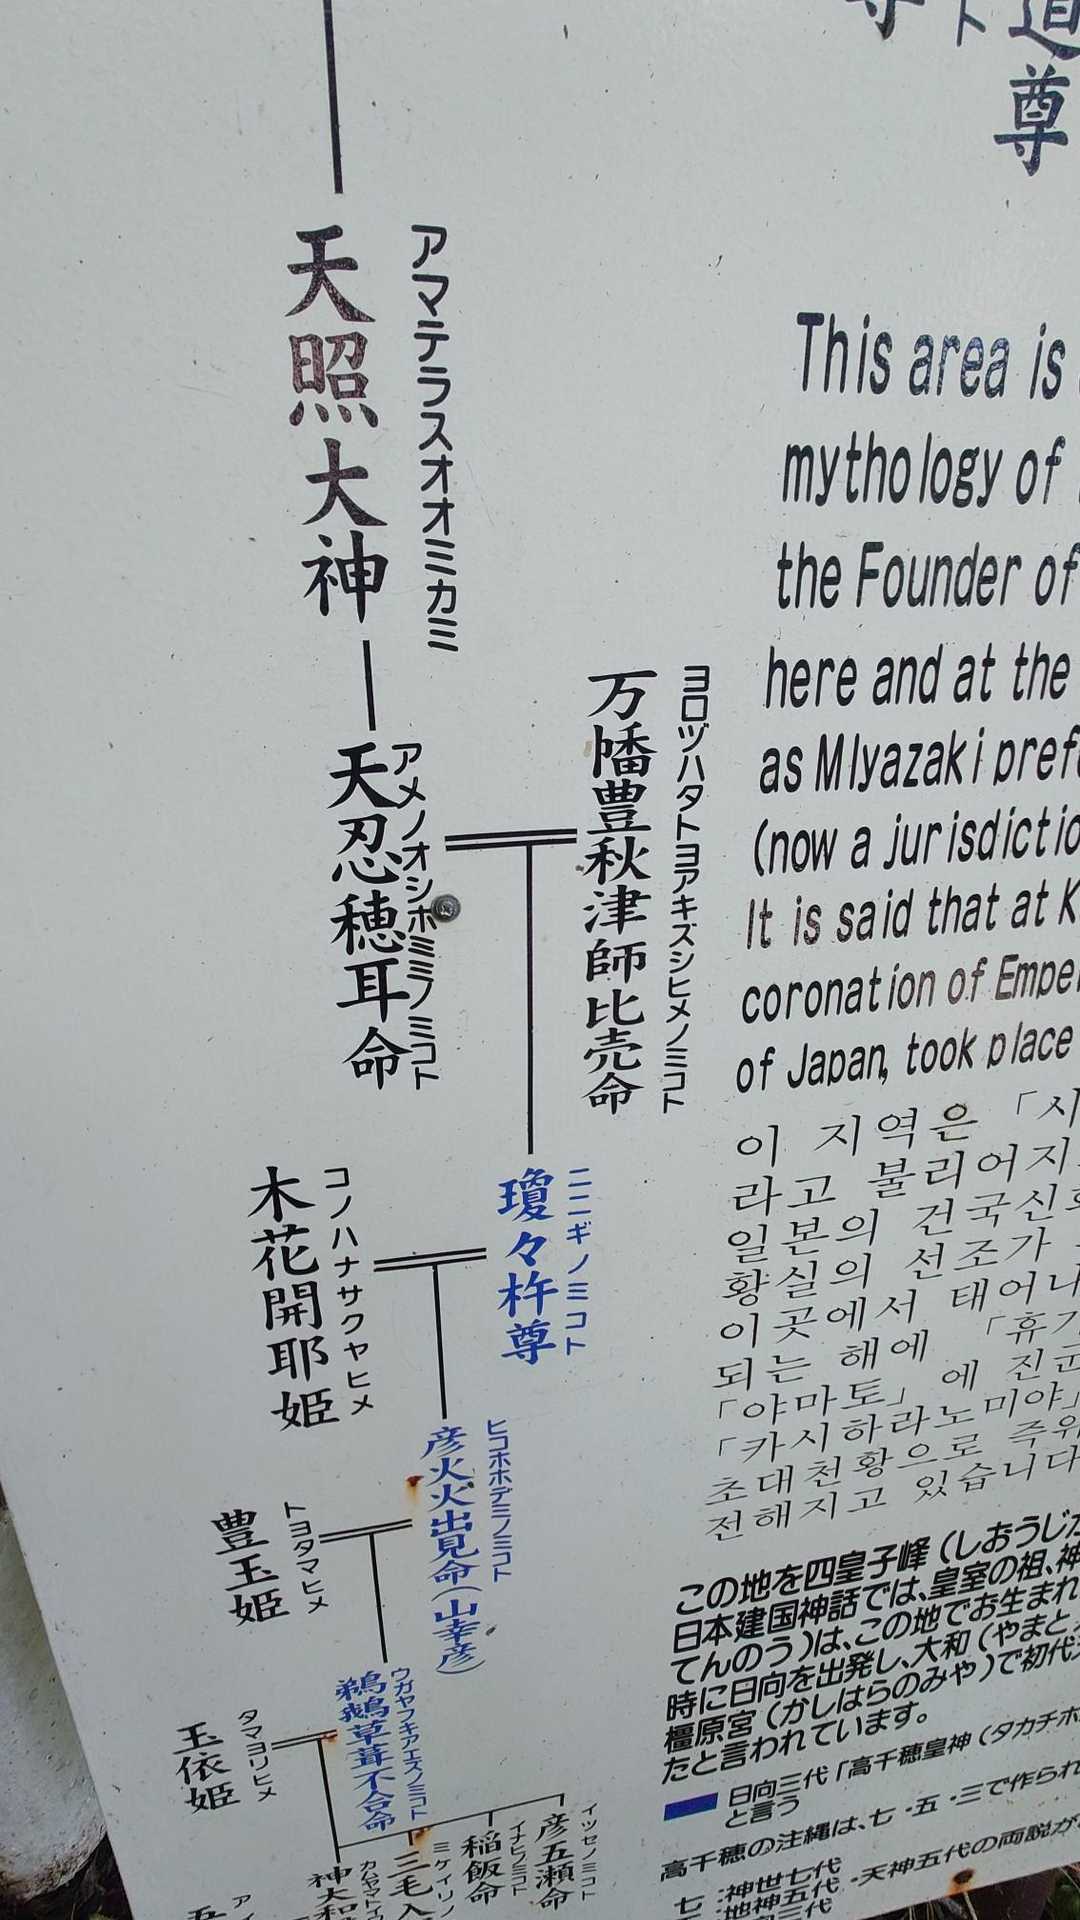 尊
ト
道
尊
天照大神
アマテラスオオミカミ
天忍穂耳命
アメノオシホミミノミコト
万幡豊秋津師比売命
ヨロヅハタトヨアキズシヒメノミコト
木花開耶姫
コノハナサクヤヒメ
瓊々杵尊
ニニギノミコト
彦火火出見命(山幸彦)
ヒコホホデミノミコト
豊玉姫
トヨタマヒメ
鵜鵝草葺不合命
ウガヤフキアエズノミコト
玉依姫
タマヨリヒメ
彦五瀬命
イツセノミコト
稲飯命
イナヒノミコト
三毛入
ミケイリノ
神大和
カムヤマトイ
五
アイ
This area is
mythology of
the Founder of
here and at the
as MIyazaki prefe
(now a jurisdictio
It is said that at K
coronation of Emper
of Japan, took place
이 지역은 「시
라고 불리어지
일본의 건국신화
황실의 선조가
이곳에서 태어나
되는 해에 「휴가
「야마토」에 진군
「카시하라노미야」
초대천황으로 즉위
전해지고 있습니다
この地を四皇子峰(しおうじが
日本建国神話では、皇室の祖、神
てんのう)は、この地でお生まれ
時に日向を出発し、大和(やまと
橿原宮(かしはらのみや)で初代
たと言われています。
日向三代「高千穂皇神(タカチホ
と言う
高千穂の注縄は、七・五・三で作られ
七:神世七代
:地神五代・天神五代の両説が
三代